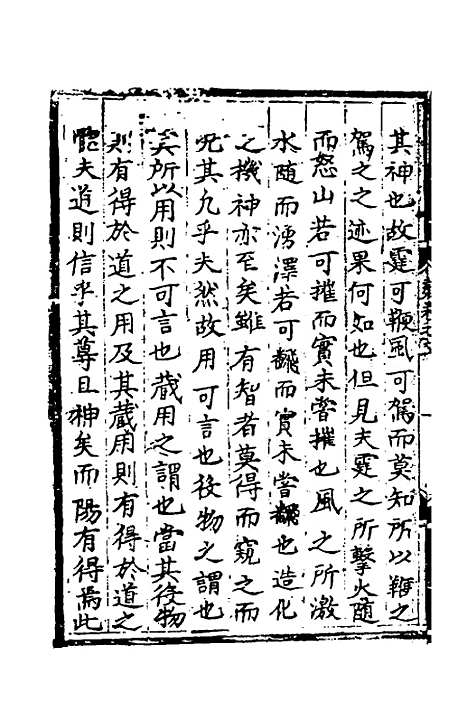 其神也故霆可鞭風可駕而莫知所以鞭之
駕之之迹果何如也但見夫霆之所擊火随
而怒山若可摧而實未嘗摧也風之所激
水随而湧澤若可飜而實未嘗飜也造化
之機神亦至矣雖有智者莫得而窺之而
况其凡乎夫然故用可言也役物之謂也
矣所以用則不可言也蔵用之謂也當其役物
則有得於道之用及其蔵用則有得於道之
體夫道則信乎其尊且神矣而陽有得焉此